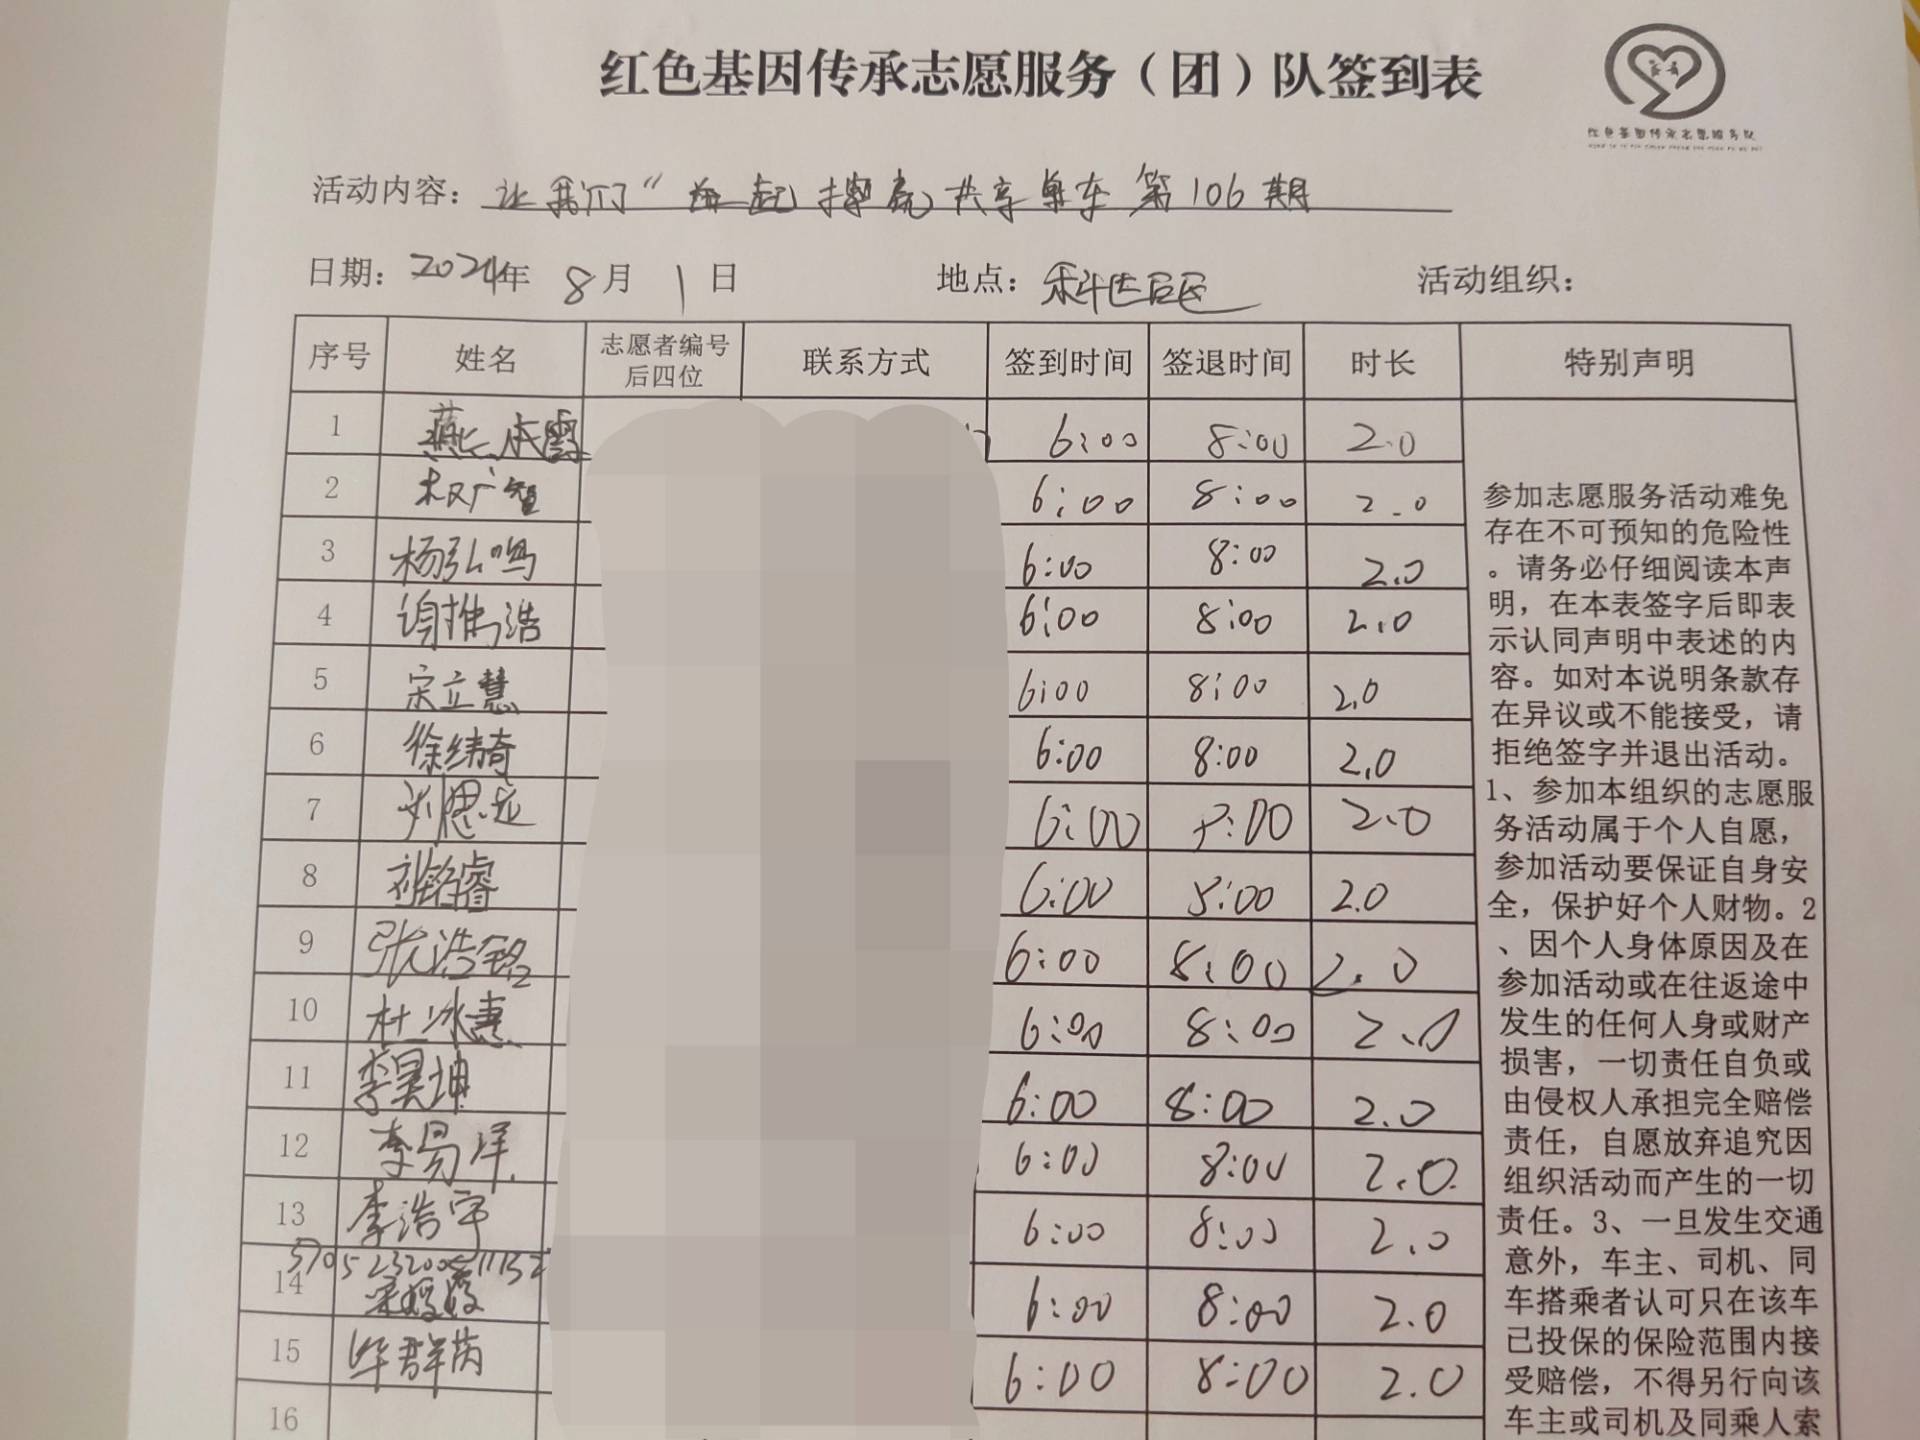 红色基因传承志愿服务（团）队签到表
红色基因传承志愿服务队
活动内容：让我们“一起擦亮共享单车第106期
日期：2024年 8月 1日 地点： 活动组织：
序号 姓名 志愿者编号后四位 联系方式 签到时间 签退时间 时长 特别声明
1 燕 6:00 8:00 2.0
2 权广智 6:00 8:00 2.0
3 杨弘鸣 6:00 8:00 2.0
4 谢 浩 6:00 8:00 2.0
5 宋立慧 6:00 8:00 2.0
6 徐纬奇 6:00 8:00 2.0
7 刘思 6:00 8:00 2.0
8 睿 6:00 8:00 2.0
9 张浩铭 6:00 8:00 2.0
10 杜冰惠 6:00 8:00 2.0
11 李昊坤 6:00 8:00 2.0
12 李易洋 6:00 8:00 2.0
13 李浩宇 6:00 8:00 2.0
14 宋 6:00 8:00 2.0
15 毕群芮 6:00 8:00 2.0
16
参加志愿服务活动难免
存在不可预知的危险性
。请务必仔细阅读本声
明，在本表签字后即表
示认同声明中表述的内
容。如对本说明条款存
在异议或不能接受，请
拒绝签字并退出活动。
1、参加本组织的志愿服
务活动属于个人自愿，
参加活动要保证自身安
全，保护好个人财物。2
、因个人身体原因及在
参加活动或在往返途中
发生的任何人身或财产
损害，一切责任自负或
由侵权人承担完全赔偿
责任，自愿放弃追究因
组织活动而产生的一切
责任。3、一旦发生交通
意外，车主、司机、同
车搭乘者认可只在该车
已投保的保险范围内接
受赔偿，不得另行向该
车主或司机及同乘人索